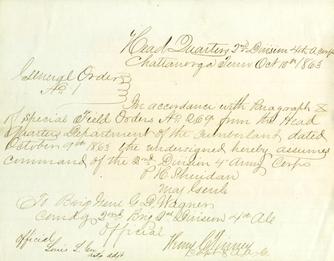 Head Quarters 2nd Division 4th A Corps
Chattanooga Tenn Oct 10th 1863
General Orders
No 1
In accordance with Paragraph 8
of Special Field Orders No 269 from the Head
Quarters Department of the Cumberland dated
October 9th 1863 the undersigned hereby assumes
command of the 2nd Division 4th Army Corps
P H Sheridan
Maj Genl
To Brig Genl G D Wagner
Comdg 2nd Brig 2nd Division 4th AC
Official
official
Capt & A A G